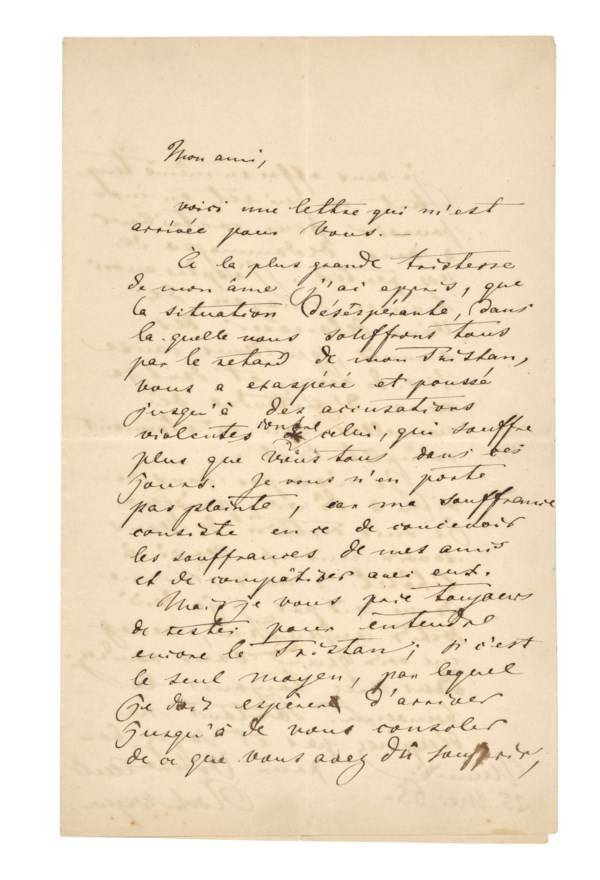 Mon ami,
voici une lettre qui m'est
arrivée pour vous. —
À la plus grande tristesse
de mon âme j'ai appris, que
la situation désespérante, dans
la quelle nous souffrons tous
par le retard de mon Tristan,
vous a exaspéré et poussé
jusqu'à des accusations
violentes contre celui, qui souffre
plus que vous tous dans ces
jours. Je vous n'en porte
pas plainte, car ma souffrance
consiste en ce de concevoir
les souffrances de mes amis
et de compâtiser avec eux.
Mais je vous prie toujours
de rester pour entendre
encore le Tristan; si c'est
le seul moyen, par lequel
je dois espérer d'arriver
jusqu'à de vous consoler
de ce que vous avez dû souffrir,